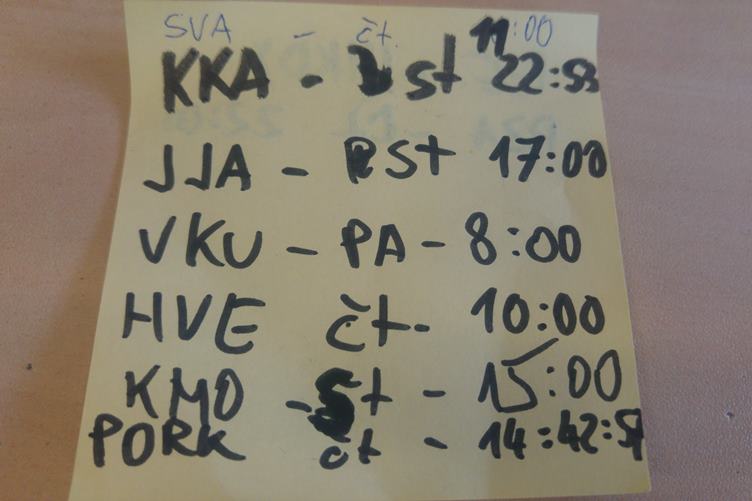 SVA - čt. 11:00
KKA - st 22:58
JJA - st 17:00
VKU - PA - 8:00
HVE čt- 10:00
KMO - St - 15:00
PORK čt - 14:42:57